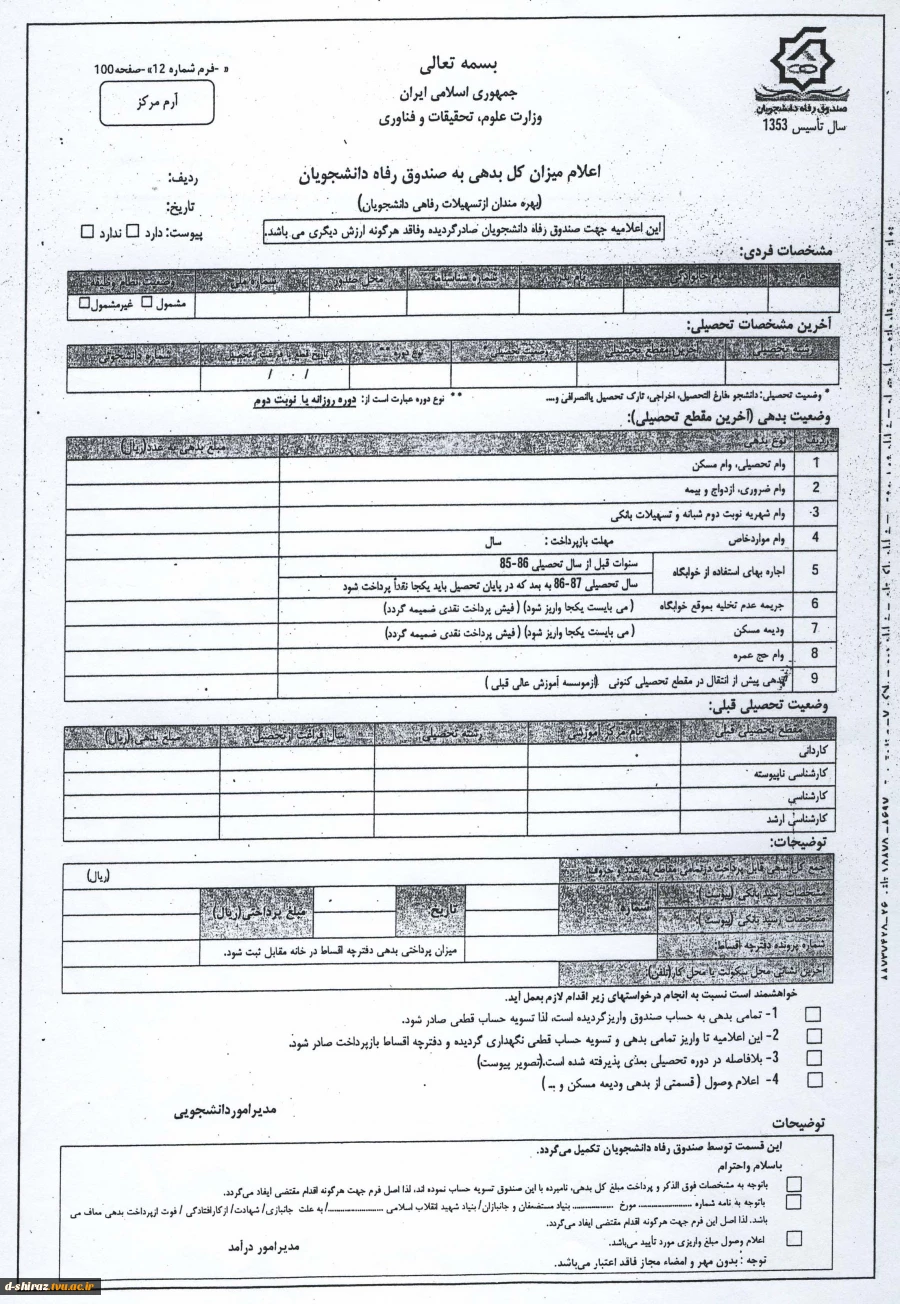 صندوق رفاه دانشجویان
سال تأسیس 1353
بسمه تعالی
جمهوری اسلامی ایران
وزارت علوم، تحقیقات و فناوری
« -فرم شماره 12»-صفحه100
آرم مرکز
اعلام میزان کل بدهی به صندوق رفاه دانشجویان
(بهره مندان ازتسهیلات رفاهی دانشجویان)
این اعلامیه جهت صندوق رفاه دانشجویان صادرگردیده وفاقد هرگونه ارزش دیگری می باشد.
ردیف:
تاریخ:
پیوست: دارد ☐ ندارد ☐
مشخصات فردی:
نام نام خانوادگی نام پدر شماره شناسنامه محل صدور شماره ملی وضعیت نظام وظیفه
مشمول ☐ غیرمشمول ☐
آخرین مشخصات تحصیلی:
رشته تحصیلی آخرین مقطع تحصیلی وضعیت تحصیلی* نوع دوره** شماره دانشجویی
/ /
* وضعیت تحصیلی: دانشجو فارغ التحصیل، اخراجی، تارک تحصیل یاانصرافی و.... ** نوع دوره عبارت است از: دوره روزانه یا نوبت دوم
وضعیت بدهی (آخرین مقطع تحصیلی):
ردیف نوع بدهی مبلغ بدهی به عدد(ریال)
1 وام تحصیلی، وام مسکن
2 وام ضروری، ازدواج و بیمه
3 وام شهریه نوبت دوم شبانه و تسهیلات بانکی
4 وام مواردخاص مهلت بازپرداخت : سال
5 اجاره بهای استفاده از خوابگاه
سنوات قبل از سال تحصیلی 86-85
سال تحصیلی 87-86 به بعد که در پایان تحصیل باید یکجا نقداً پرداخت شود
6 جریمه عدم تخلیه بموقع خوابگاه (می بایست یکجا واریز شود) (فیش پرداخت نقدی ضمیمه گردد)
7 ودیعه مسکن (می بایست یکجا واریز شود) (فیش پرداخت نقدی ضمیمه گردد)
8 وام حج عمره
9 بدهی پیش از انتقال در مقطع تحصیلی کنونی (ازموسسه آموزش عالی قبلی)
وضعیت تحصیلی قبلی:
مقطع تحصیلی قبلی نام مرکز آموزشی رشته تحصیلی سال فراغت ازتحصیل مبلغ بدهی (ریال)
کاردانی
کارشناسی ناپیوسته
کارشناسی
کارشناسی ارشد
توضیحات:
جمع کل بدهی قابل پرداخت درتمامی مقاطع به عدد و حروف: (ریال)
مشخصات رسید بانکی (پیوست): شماره تاریخ مبلغ پرداختی(ریال)
مشخصات رسید بانکی (پیوست):
شماره پرونده دفترچه اقساط: میزان پرداختی بدهی دفترچه اقساط در خانه مقابل ثبت شود.
آخرین نشانی محل سکونت یا محل کار(تلفن):
خواهشمند است نسبت به انجام درخواستهای زیر اقدام لازم بعمل آید.
☐ 1- تمامی بدهی به حساب صندوق واریزگردیده است، لذا تسویه حساب قطعی صادر شود.
☐ 2- این اعلامیه تا واریز تمامی بدهی و تسویه حساب قطعی نگهداری گردیده و دفترچه اقساط بازپرداخت صادر شود.
☐ 3- بلافاصله در دوره تحصیلی بعدی پذیرفته شده است.(تصویر پیوست)
☐ 4- اعلام وصول ( قسمتی از بدهی ودیعه مسکن و ... )
مدیراموردانشجویی
توضیحات
این قسمت توسط صندوق رفاه دانشجویان تکمیل می‌گردد.
باسلام واحترام
☐ باتوجه به مشخصات فوق الذکر و پرداخت مبلغ کل بدهی، نامبرده با این صندوق تسویه حساب نموده اند، لذا اصل فرم جهت هرگونه اقدام مقتضی ایفاد می‌گردد.
☐ باتوجه به نامه شماره .................... مورخ .............. بنیاد مستضعفان و جانبازان/ بنیاد شهید انقلاب اسلامی ..................../ به علت جانبازی/ شهادت/ ازکارافتادگی / فوت ازپرداخت بدهی معاف می
باشد. لذا اصل این فرم جهت هرگونه اقدام مقتضی ایفاد می‌گردد.
☐ اعلام وصول مبلغ واریزی مورد تأیید می‌باشد.
توجه : بدون مهر و امضاء مجاز فاقد اعتبار می‌باشد.
مدیرامور درآمد
d-shiraz.tvu.ac.ir